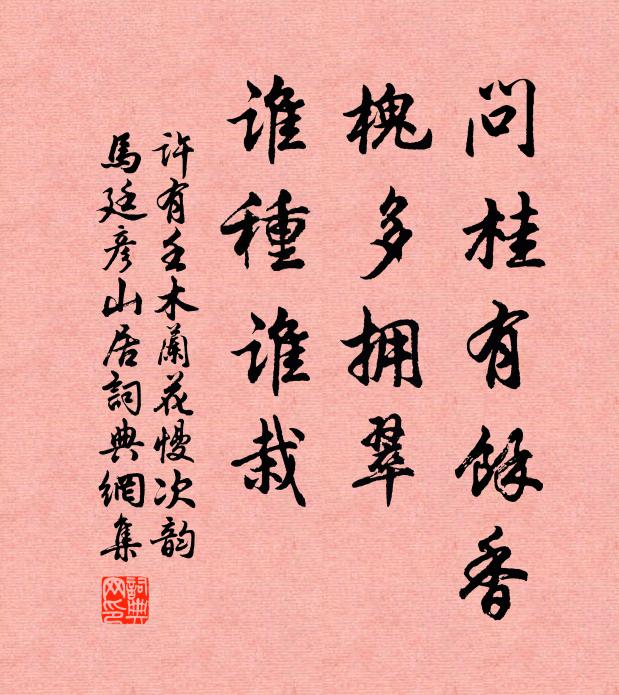 問桂有餘香
槐多拥翠
誰種誰栽
許有壬木蘭花慢次韵
馬廷彦山居詞典網集
詞典
网印